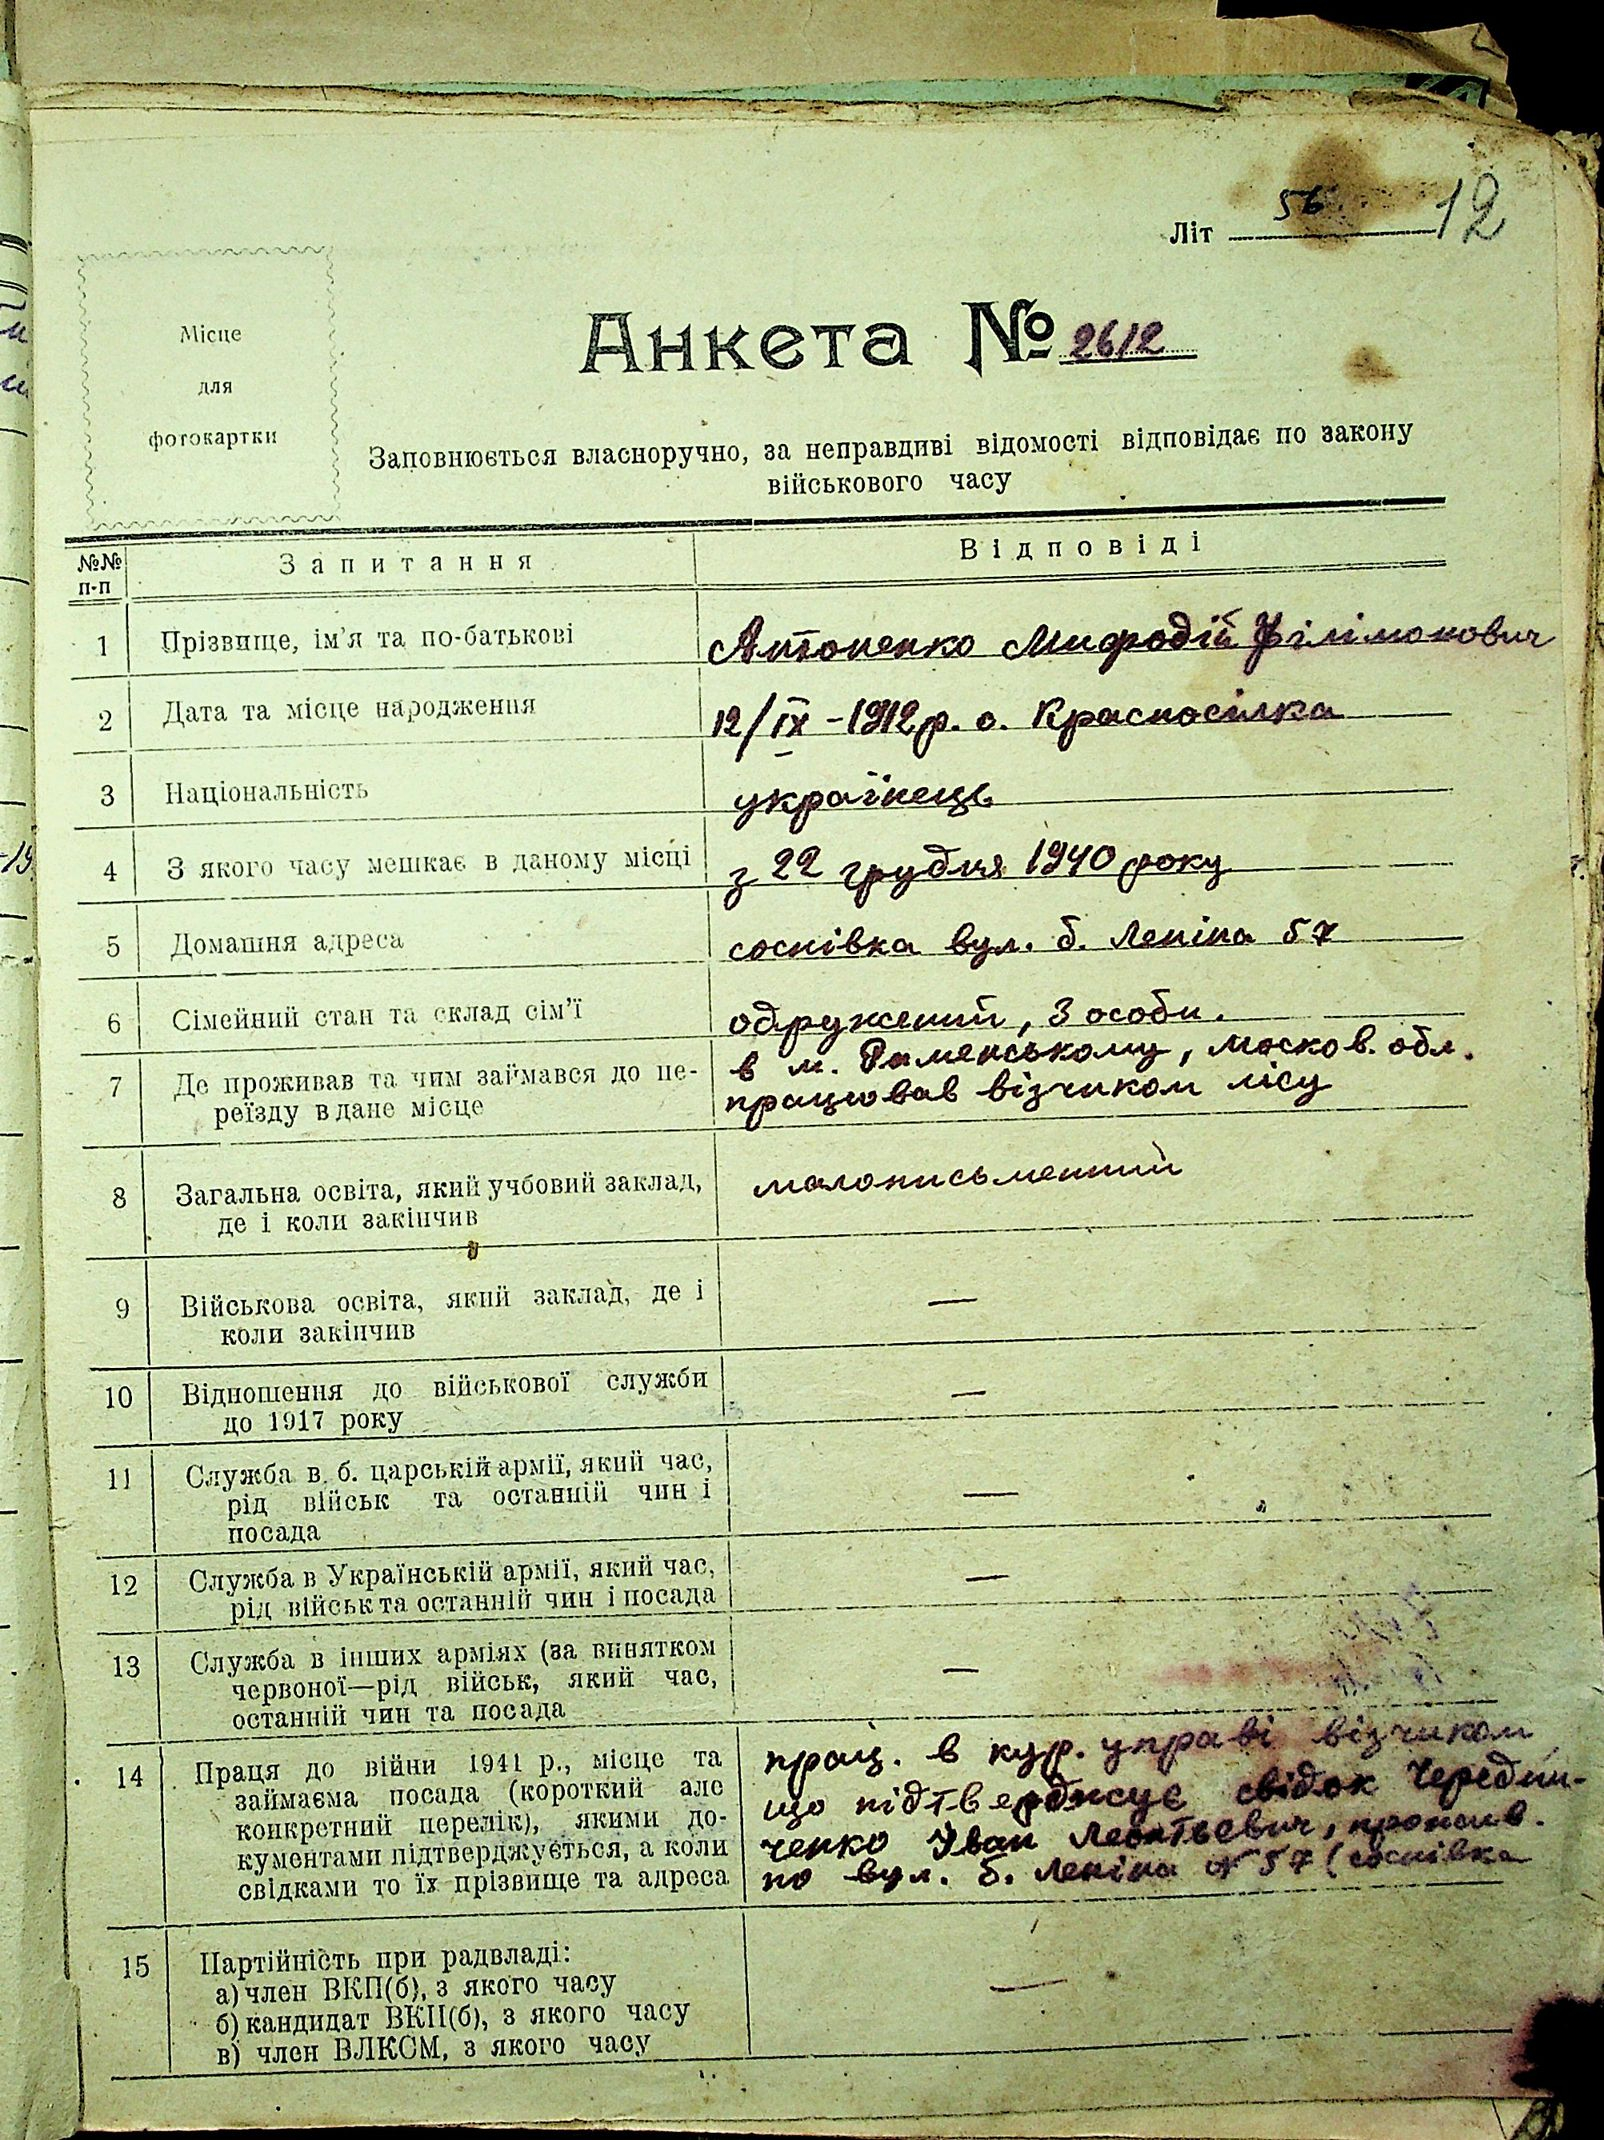 56
12
Літ
Місце
для
фотокартки
Анкета № 2612
Заповнюється власноручно, за неправдиві відомості відповідає по закону
військового часу
№№
п-п
Запитання
Відповіді
1 Прізвище, ім'я та по-батькові
Антоненко Мифодій Філімонович
2 Дата та місце народження
12/IX-1912 р. с. Красносілка
3 Національність
українець
4 З якого часу мешкає в даному місці
з 22 грудня 1940 року
5 Домашня адреса
соснівка вул. б. Леніна 57
6 Сімейний стан та склад сім'ї
одружений, 3 особи.
7 Де проживав та чим займався до пе-
реїзду в дане місце
в м. Раменському, москов. обл.
працював візчиком лісу
8 Загальна освіта, який учбовий заклад,
де і коли закінчив
малописьменний
9 Військова освіта, який заклад, де і
коли закінчив
—
10 Відношення до військової служби
до 1917 року
—
11 Служба в б. царській армії, який час,
рід військ та останній чин і
посада
—
12 Служба в Українській армії, який час,
рід військ та останній чин і посада
—
13 Служба в інших арміях (за винятком
червоної—рід військ, який час,
останній чин та посада
—
14 Праця до війни 1941 р., місце та
займаєма посада (короткий але
конкретний перелік), якими до-
кументами підтверджується, а коли
свідками то їх прізвище та адреса
прац. в кур. управі візчиком
що підтверджує свідок Чередни-
ченко Іван Леонтьевич, прожив.
по вул. б. Леніна № 57 (соснівка
15 Партійність при радвладі:
а) член ВКП(б), з якого часу
б) кандидат ВКП(б), з якого часу
в) член ВЛКСМ, з якого часу
—